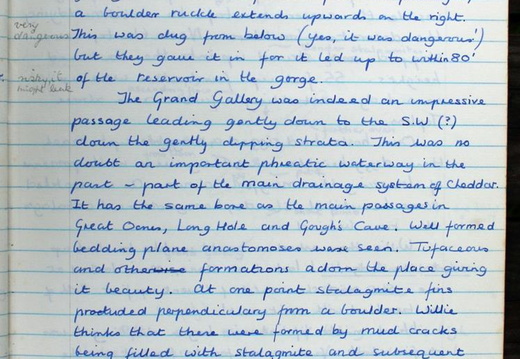 a boulder ruckle extends upwards on the right.
very
dangerous
This was dug from below (yes, it was dangerous!)
but they gave it in for it led up to within 80'
risky, it
might leak
of the reservoir in the gorge.
The Grand Gallery was indeed an impressive
passage leading gently down to the S.W (?)
down the gently dipping strata. This was no
doubt an important phreatic waterway in the
past - part of the main drainage system of Cheddar.
It has the same bore as the main passages in
Great Oones, Long Hole and Gough's Cave. Well formed
bedding plane anastomoses were seen. Tufaceous
and otherwise formations adorn the place giving
it beauty. At one point stalagmite fins
protruded perpendiculary from a boulder. Willie
thinks that there were formed by mud cracks
being filled with stalagmite and subsequent